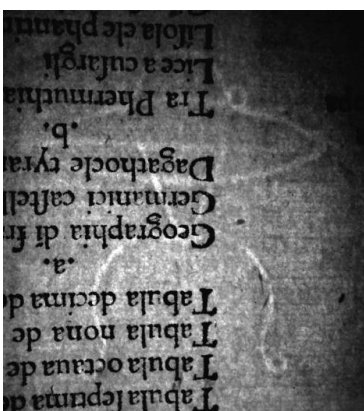 Tabula ſeptima de
Tabula octaua de
Tabula nona de
Tabula decima d
.a.
Geographia di fra
Germanici caſtell
Dagathocle tyran
.b.
Tra Phermuthia
Lice a cuſargli
Liſola ele phantin